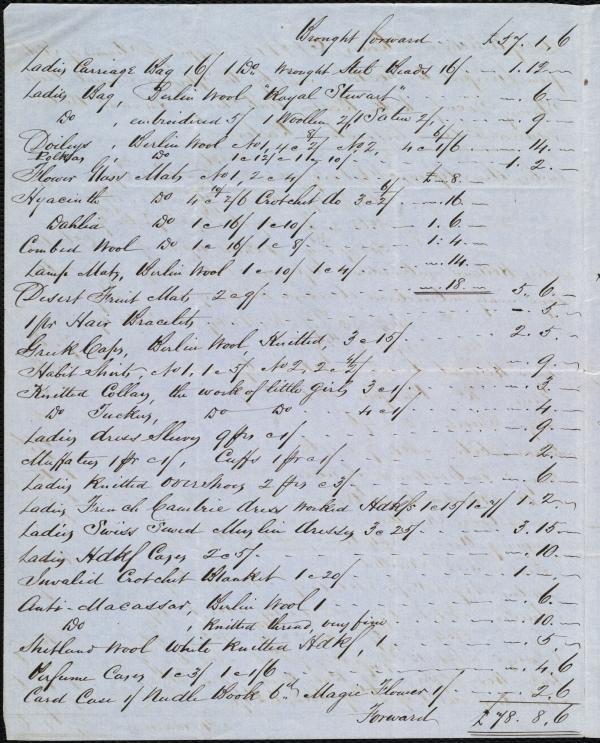 Brought forward £57.1.6
Ladies Carriage Bag 16/ 1 Do Wrought Steel Beads 16/ 1.12.-
Ladies Bag, Berlin Wool "Royal Stewart" -.6.-
Do, embroidered 5/ 1 Woollen 2/, 1 Satin 2/, -.9.-
Doileys, Berlin Wool No 1, 4 c 2/ 8/ No 2, 4 c 1/6 6/ -.14.-
Polkas, Do 1 c 12/ c 1 10/ 1.2.-
Flower Vase Mats No 1, 2 c 4/ £-.8.-
Hyacinth Do 4 c 2/6 10/ Crotchet do 3 c 2/ 6/ -.16.-
Dahlia Do 1 c 16/ 1 c 10/ 1.6.-
Combed Wool Do 1 c 16/ 1 c 8/ 1.4.-
Lamp Mats, Berlin Wool 1 c 10/ 1 c 4/ -.14.-
Desert Fruit Mats 2 c 9/ -.18.- 5.6.-
1 pr Hair Bracelets -.5.-
Greek Caps, Berlin Wool, Knitted, 3 c 15/ 2.5.-
Habit Shirts, No 1, 1 c 5/ No 2, 2 c 2/ 4/ -.9.-
Knitted Collars, the work of little Girls 3 c 1/ -.3.-
Do Tuckers, Do Do 4 c 1/ -.4.-
Ladies dress Sleeves 9 prs c 1/ -.9.-
Muffatees 1 pr c 1/, Cuffs 1 pr c 1/ -.2.-
Ladies Knitted Overshoes 2 prs c 3/ -.6.-
Ladies French Cambric dress worked Hdkfs 1 c 15/ 1 c 7/ 1.2.-
Ladies Swiss Sewed Muslin dresses 3 c 25/ 3.15.-
Ladies Hdkf Cases 2 c 5/ -.10.-
Invalid Crotchet Blanket 1 c 20/ 1.-.-
Anti-Macassar, Berlin Wool 1 -.6.-
Do, Knitted thread, very fine -.10.-
Shetland Wool White Knitted Hdkf, 1 -.5.-
Perfume Cases 1 c 3/ 1 c 1/6 -.4.6
Card Case 1/ Needle Book 6d Magic Flower 1/ -.2.6
Forward £78.8.6